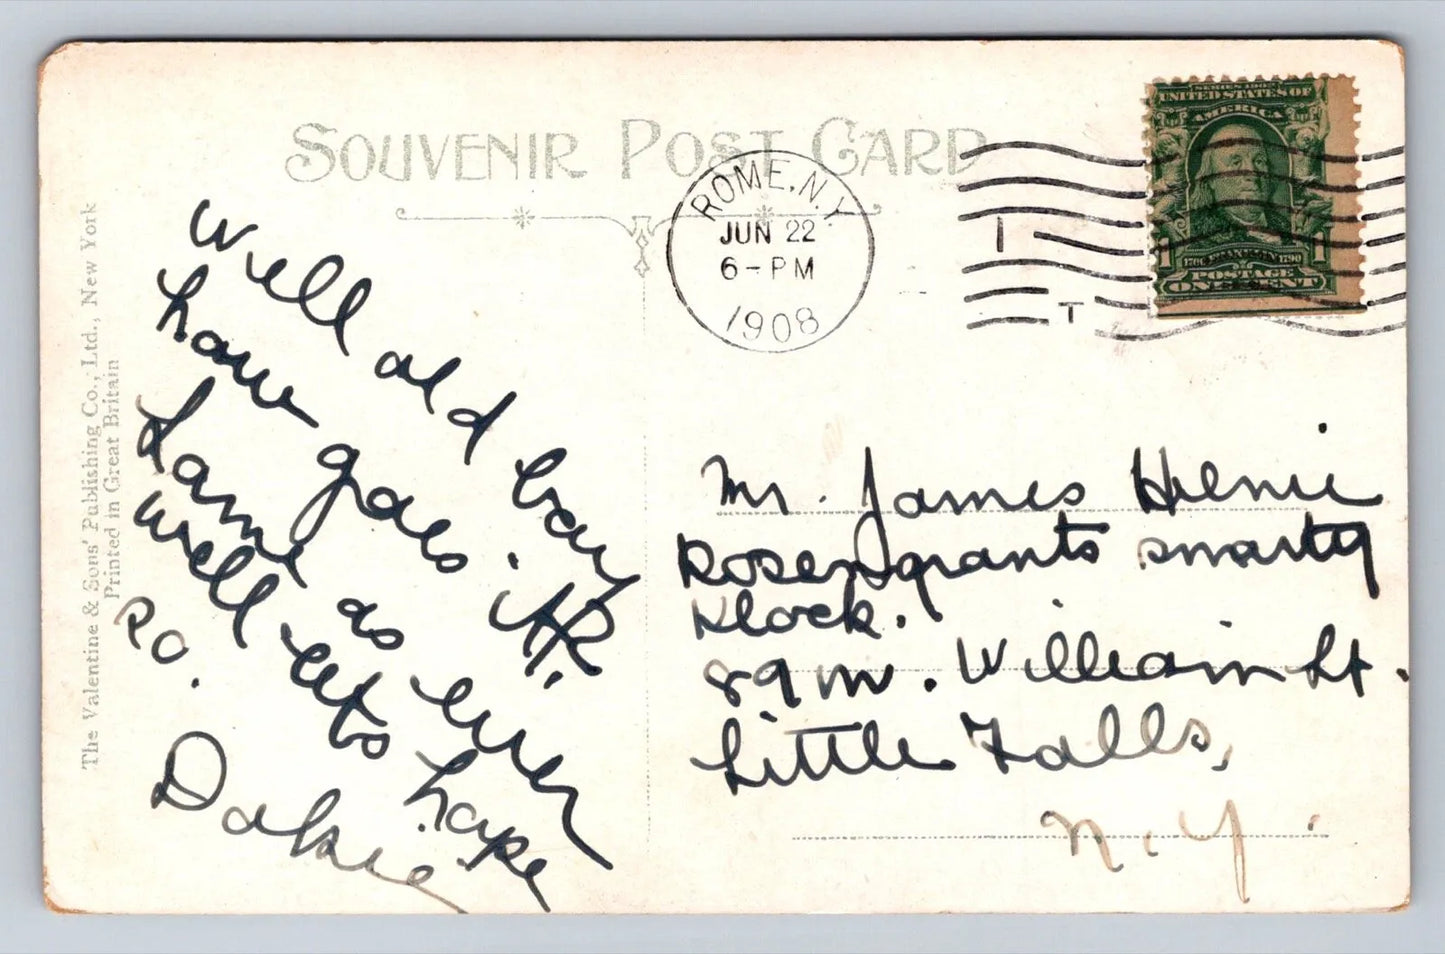 SOUVENIR POST CARD
The Valentine & Sons' Publishing Co., Ltd., New York
Printed in Great Britain
ROME, N.Y
JUN 22
6-PM
1908
I
T
SERIES 1902
UNITED STATES OF
AMERICA
1 1
1706 FRANKLIN 1790
POSTAGE
ONE CENT
Well old boy
how goes it.
Same as ever
well lets hope
so.
Dakie
Mr. James
Rosengrants
Block.
89 W. William St.
Little Falls,
N.Y.